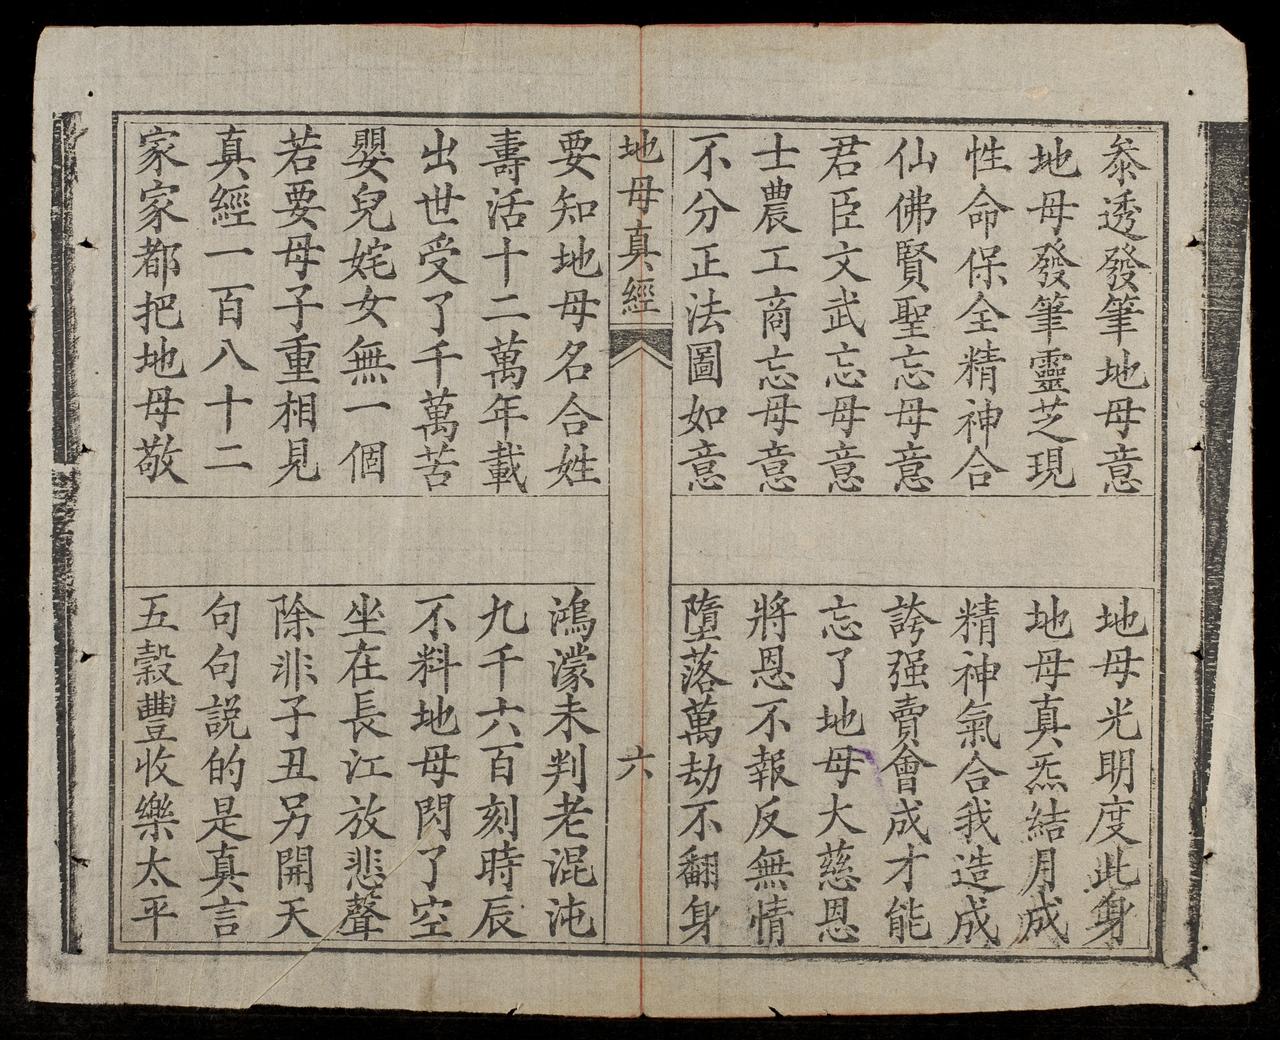 叅透發筆地母意
地母光明度此身
地母發筆靈芝現
地母真炁結月成
性命保全精神合
精神氣合我造成
仙佛賢聖忘母意
誇强賣會成才能
君臣文武忘母意
忘了地母大慈恩
士農工商忘母意
將恩不報反無情
不分正法圖如意
墮落萬劫不翻身
地母真經
六
要知地母名合姓
鴻濛未判老混沌
壽活十二萬年載
九千六百刻時辰
出世受了千萬苦
不料地母閃了空
嬰兒姹女無一個
坐在長江放悲聲
若要母子重相見
除非子丑另開天
真經一百八十二
句句説的是真言
家家都把地母敬
五穀豐收樂太平